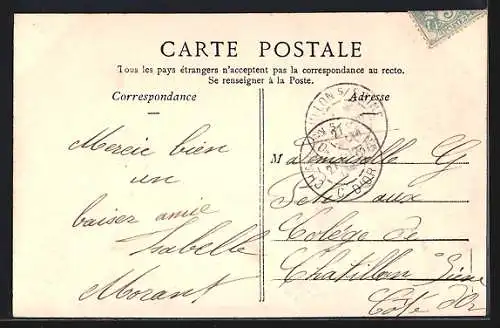 CARTE POSTALE
Tous les pays étrangers n'acceptent pas la correspondance au recto.
Se renseigner à la Poste.
Correspondance
Adresse
CHATILLON S/ SEINE
CÔTE D'OR
Mercie bien
un
baiser amie
Isabelle
Morant
Mademoiselle G
Petit aux
Colége de
Chatillon Seine
Côte d'Or